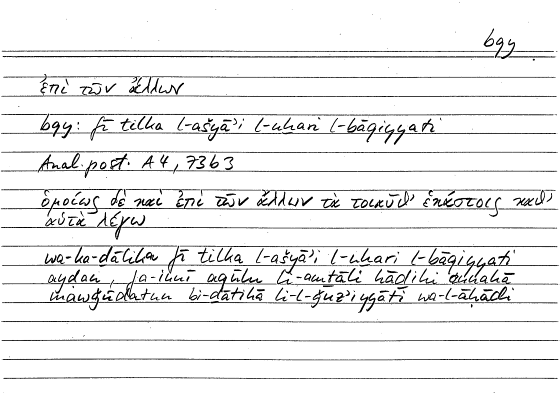 bqy
ἐπὶ τῶν ἄλλων
bqy: fī tilka l-ašyāʾi l-uḫari l-bāqiyyati
Anal. post. A 4, 73b3
ὁμοίως δὲ καὶ ἐπὶ τῶν ἄλλων τὰ τοιαῦθ' ἑκάστοις καθ'
αὑτὰ λέγω
wa-ka-ḏālika fī tilka l-ašyāʾi l-uḫari l-bāqiyyati
ayḍan, fa-innī aqūlu li-amṯāli hāḏihi annahā
mawǧūdatun bi-ḏātihā li-l-ǧuzʾiyyāti wa-l-āḥādi